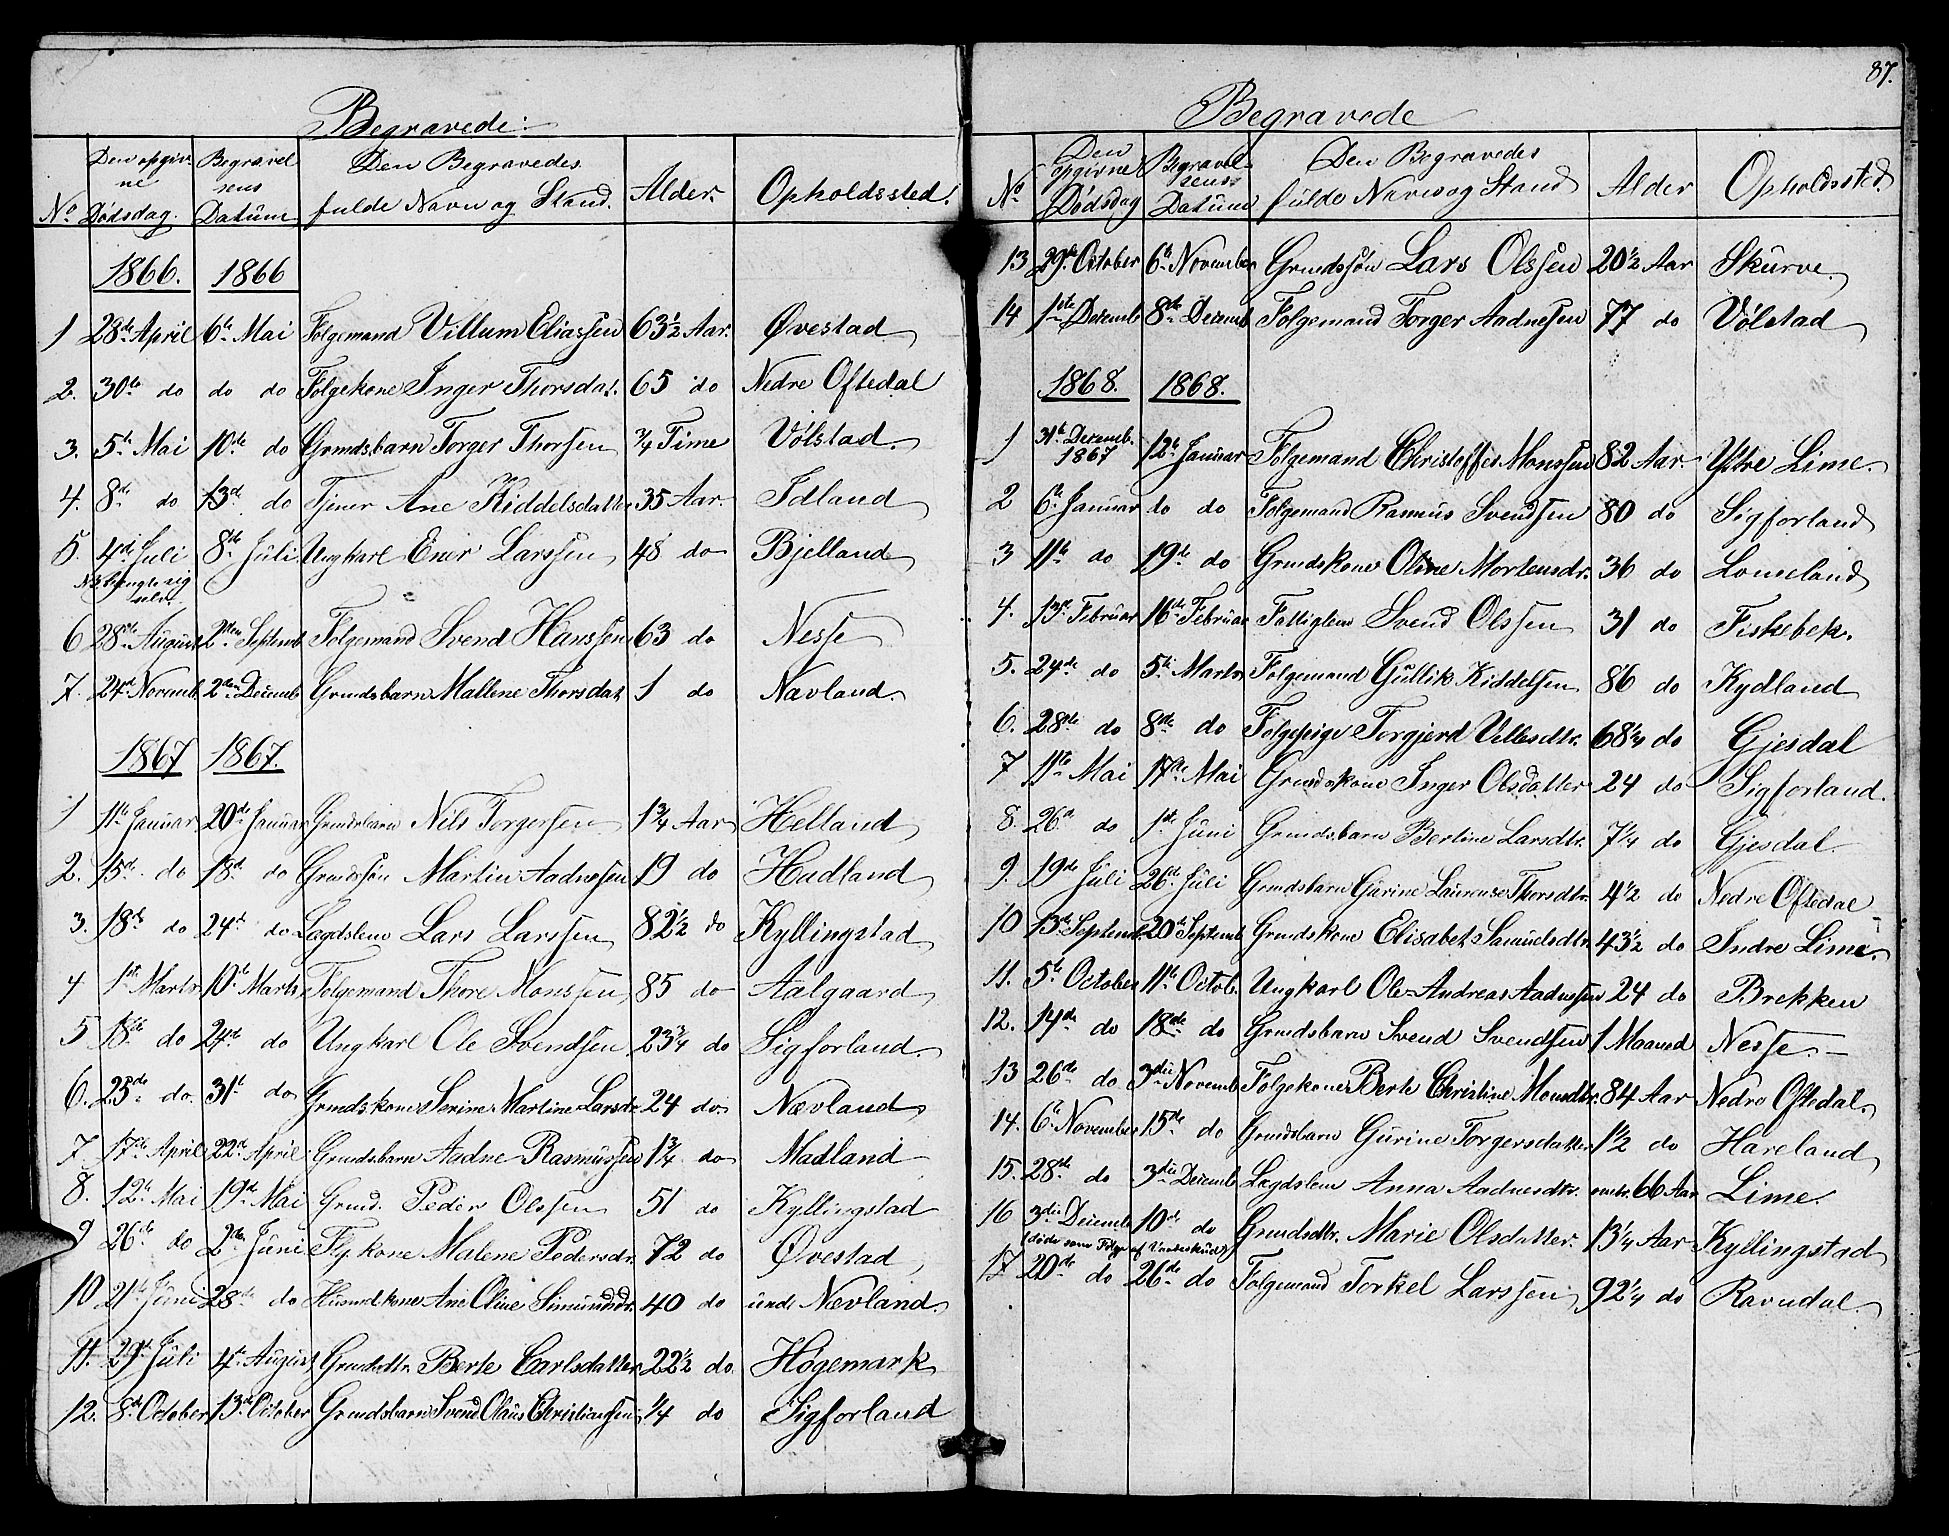 Begravede.
No Den opgivne Dødsdag. Begravelsens Datum Den Begravedes fulde Navn og Stand. Alder. Opholdssted.
1866. 1866
1 28de April 6te Mai Folgemand Villum Eliassen 63½ Aar. Øvestad
2. 30te do do do Folgekone Inger Thorsdat. 65 do Nedre Oftedal
3. 5te Mai 10de do Grmdsbarn Torger Thorsen ¾ Time Vølstad
4. 8de do 13de do Tjener Ane Kiddelsdatter 35 Aar. Idland
5. 4de Juli 8de Juli Ungkarl Ener Larssen 48 do Bjelland
NB hængte sig selv.
6 28de August 2den Septemb Folgemand Svend Hanssen 63 do Nesse
7. 24de Novemb. 2den Decemb Grmdsbarn Mallene Thorsdat. 1 do Nævland.
1867 1867.
1 11te Januar 20de Januar Grmdsbarn Nils Torgersen 1¾ Aar Helland
2. 15de do 18de do Grmdssøn Martin Aadnessen 19 do Hadland
3. 18de do 24de do Lægdslem Lars Larssen 82½ do Kyllingstad
4 1ste Marts 10de Marts Folgemand Thore Monssen 85 do Aalgaard
5 18de do 24de do Ungkarl Ole Svendsen 23¾ do Sigforland.
6. 25de do. 31te do Grmdskone Serine Martine Larsdr. 24 do Nævland
7. 17de April 22de April Grmdsbarn Aadne Rasmussen 1¾ do Madland
8. 12te Mai 19de Mai Grmd. Peder Olssen 51 do Kyllingstad
9 26de do 2den Juni Flgkone Malene Pedersdr. 72 do Øvestad
10 21de Juni 28de do Husmdkone Ane Oline Simundsdr. 40 do und. Nævland.
11. 29de Juli 4de August Grmdsdtr. Berte Carlsdatter 22½ do. Høgemark
12. 8de October 13de October Grmdsbarn Svend Olaus Christiansen ¼ do Sigforland
87.
Begravede
No Den opgivne Dødsdag Begravelsens Datum Den Begravedes fulde Navn og Stand Alder Opholdssted.
13 29de October 6te November Grmdssøn Lars Olssen 20½ Aar Skurve.
14 1ste Decemb 8de Decemb Folgemand Torger Aadnesen 77 do Vølstad
1868. 1868.
1 31te Decemb. 1867 12te Januar Folgemand Christoffer Monssen 82 Aar. Ytre Lime.
2 6te Januar do do Folgemand Rasmus Svendsen 80 do Sigforland
3 11te do 19de do Grmdskone Oline Mortensdr. 36 do Lomeland
4. 13de Februar 16de Februar Fattiglem Svend Olssen 31 do Fiskebek.
5. 24de do 5te Marts Folgemand Gullik Kiddelsen 86 do Kydland
6. 28de do 8de do Folgepige Torgjerd Villumsdtr. 68¼ do Gjesdal
7 11te Mai 17de Mai Grmdskone Inger Olsdatter 24 do Sigforland.
8. 26de do 1ste Juni Grmdsbarn Bertine Larsdtr. 7¼ do Gjesdal
9. 19de Juli 26de Juli Grmdsbarn Gurine Laurense Thorsdtr. 4½ do Nedre Oftedal
10 13de Septemb. 20de Septemb Grmdskone Elisabet Samuelsdtr. 43½ do Indre Lime.
11. 5te October 11te Octob. Ungkarl Ole Andreas Aadnessen 24 do Brekken
12. 14de do 18de do Grmdsbarn Svend Svendsen 1 Maaned Nesse.
13 26de do 3die Novemb Folgekone Berte Christine Monsdtr. 84 Aar Nedre Oftedal.
14. 6te November 15de do Grmdsbarn Gurine Torgersdatter 1½ do Hareland
15. 28de do 3die Decemb Lægdslem Anna Aadnesdtr. omtr. 66 Aar Lime.
16 3die Decemb 10de do Grmdsdtr. Marie Olsdatter. 13¼ Aar Kyllingstad
(døde som Følge af Vandeskud)
17 20de do 26de do Folgemand Torkel Larssen 92¼ do Ravndal.